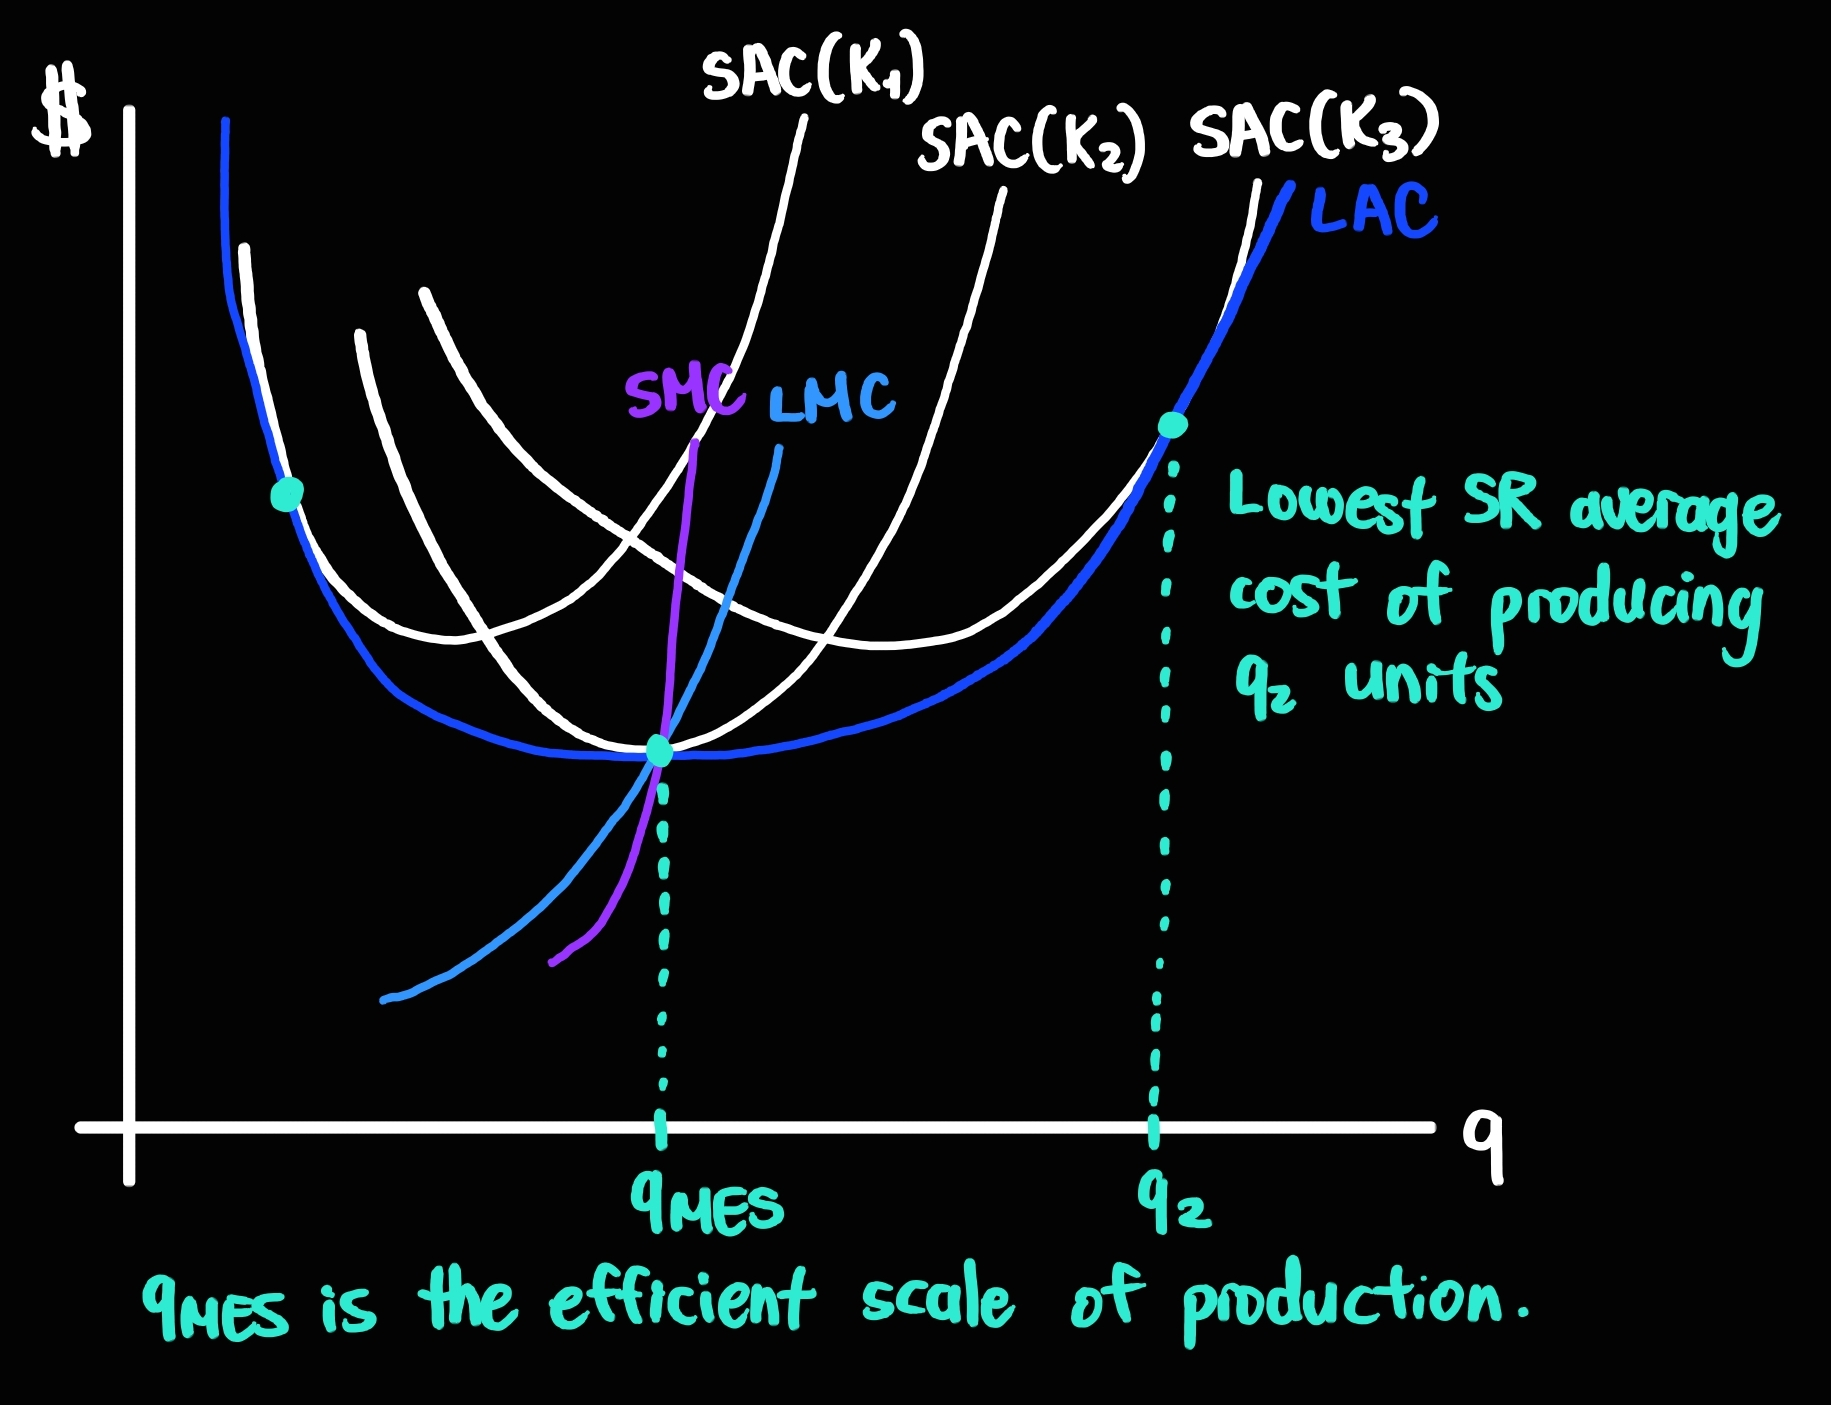 $
SAC(K₁)
SAC(K₂)
SAC(K₃)
LAC
SMC
LMC
Lowest SR average
cost of producing
q₂ units
q
qMES
q₂
qMES is the efficient scale of production.